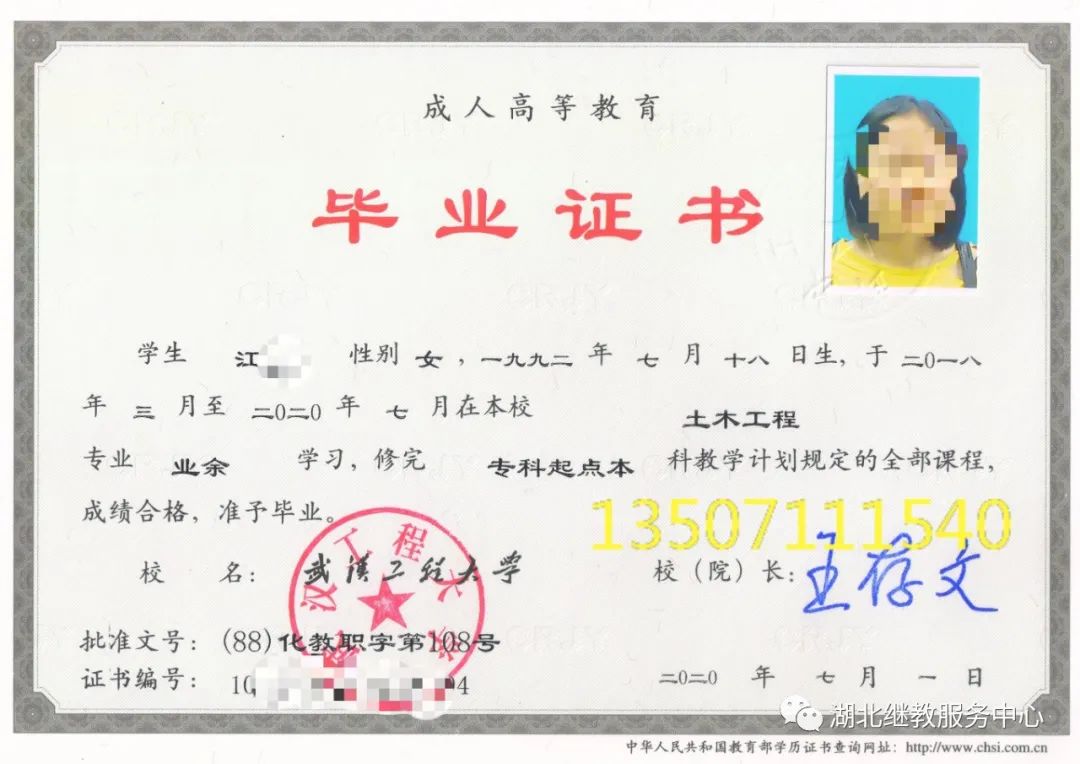 成人高等教育
毕业证书
学生 江 性别 女，一九九二 年 七 月 十八 日生，于 二〇一八
年 三 月至 二〇二〇 年 七 月在本校 土木工程
专业 业余 学习，修完 专科起点本 科教学计划规定的全部课程，
成绩合格，准予毕业。
13507111540
校 名：武汉工程大学 校（院）长：王存文
武汉工程大学
批准文号：(88)化教职字第108号
证书编号：10 04
二〇二〇 年 七 月 一 日
湖北继教服务中心
中华人民共和国教育部学历证书查询网址：http://www.chsi.com.cn